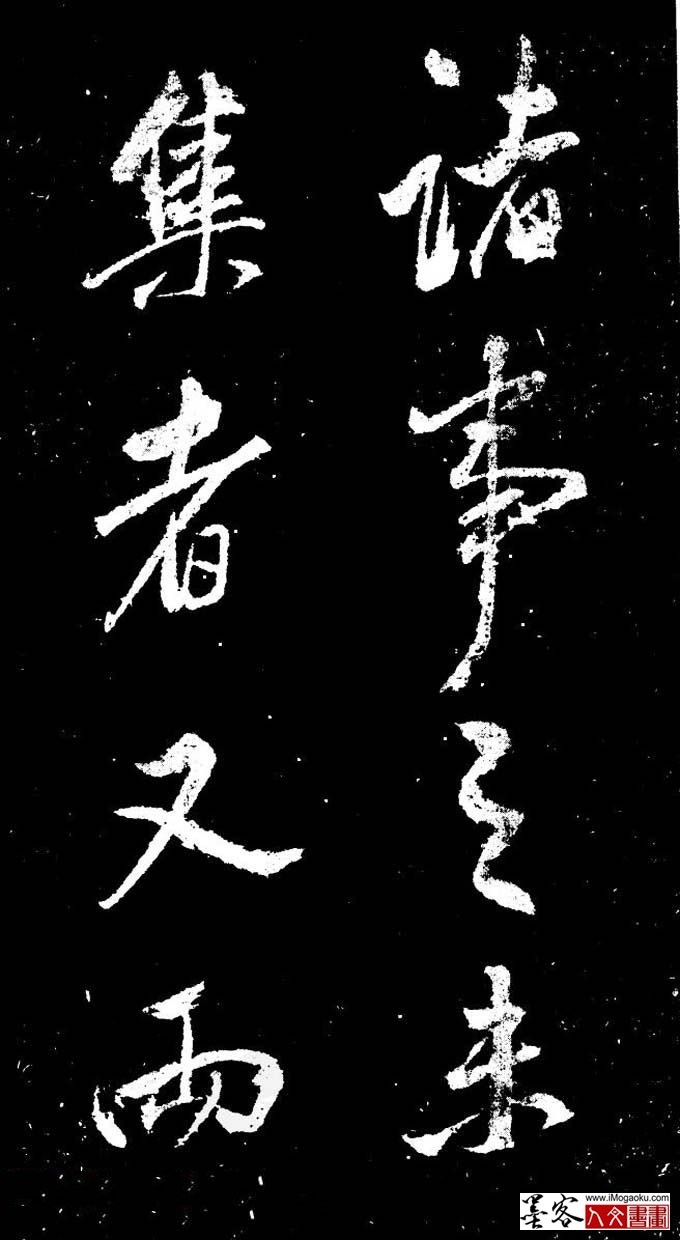 诸事之未
集者又两
墨客
www.iMogaoku.com
人文書畫